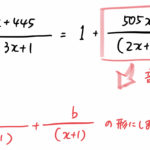 x+445 / 3x+1 = 1 + 505x / (2x+
1) + b / (x+1) の形にしま